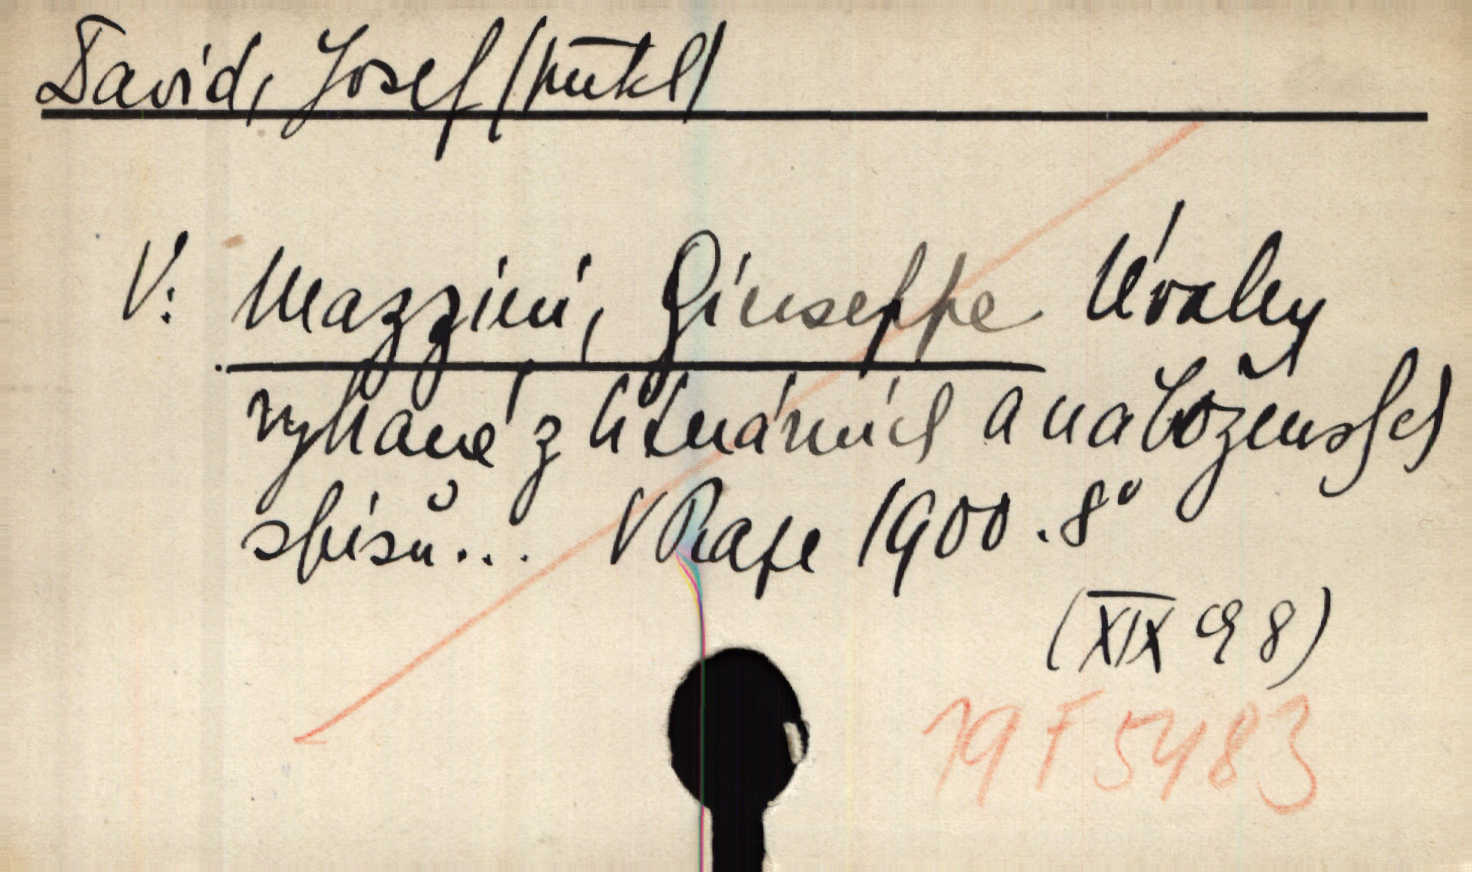 David, Josef (překl)
V: Mazzini, Giuseppe Úvahy
vybrané z literárních a nábožensch
spisů... V Praze 1900. 8°
(XIX c 98)
19 F 5483